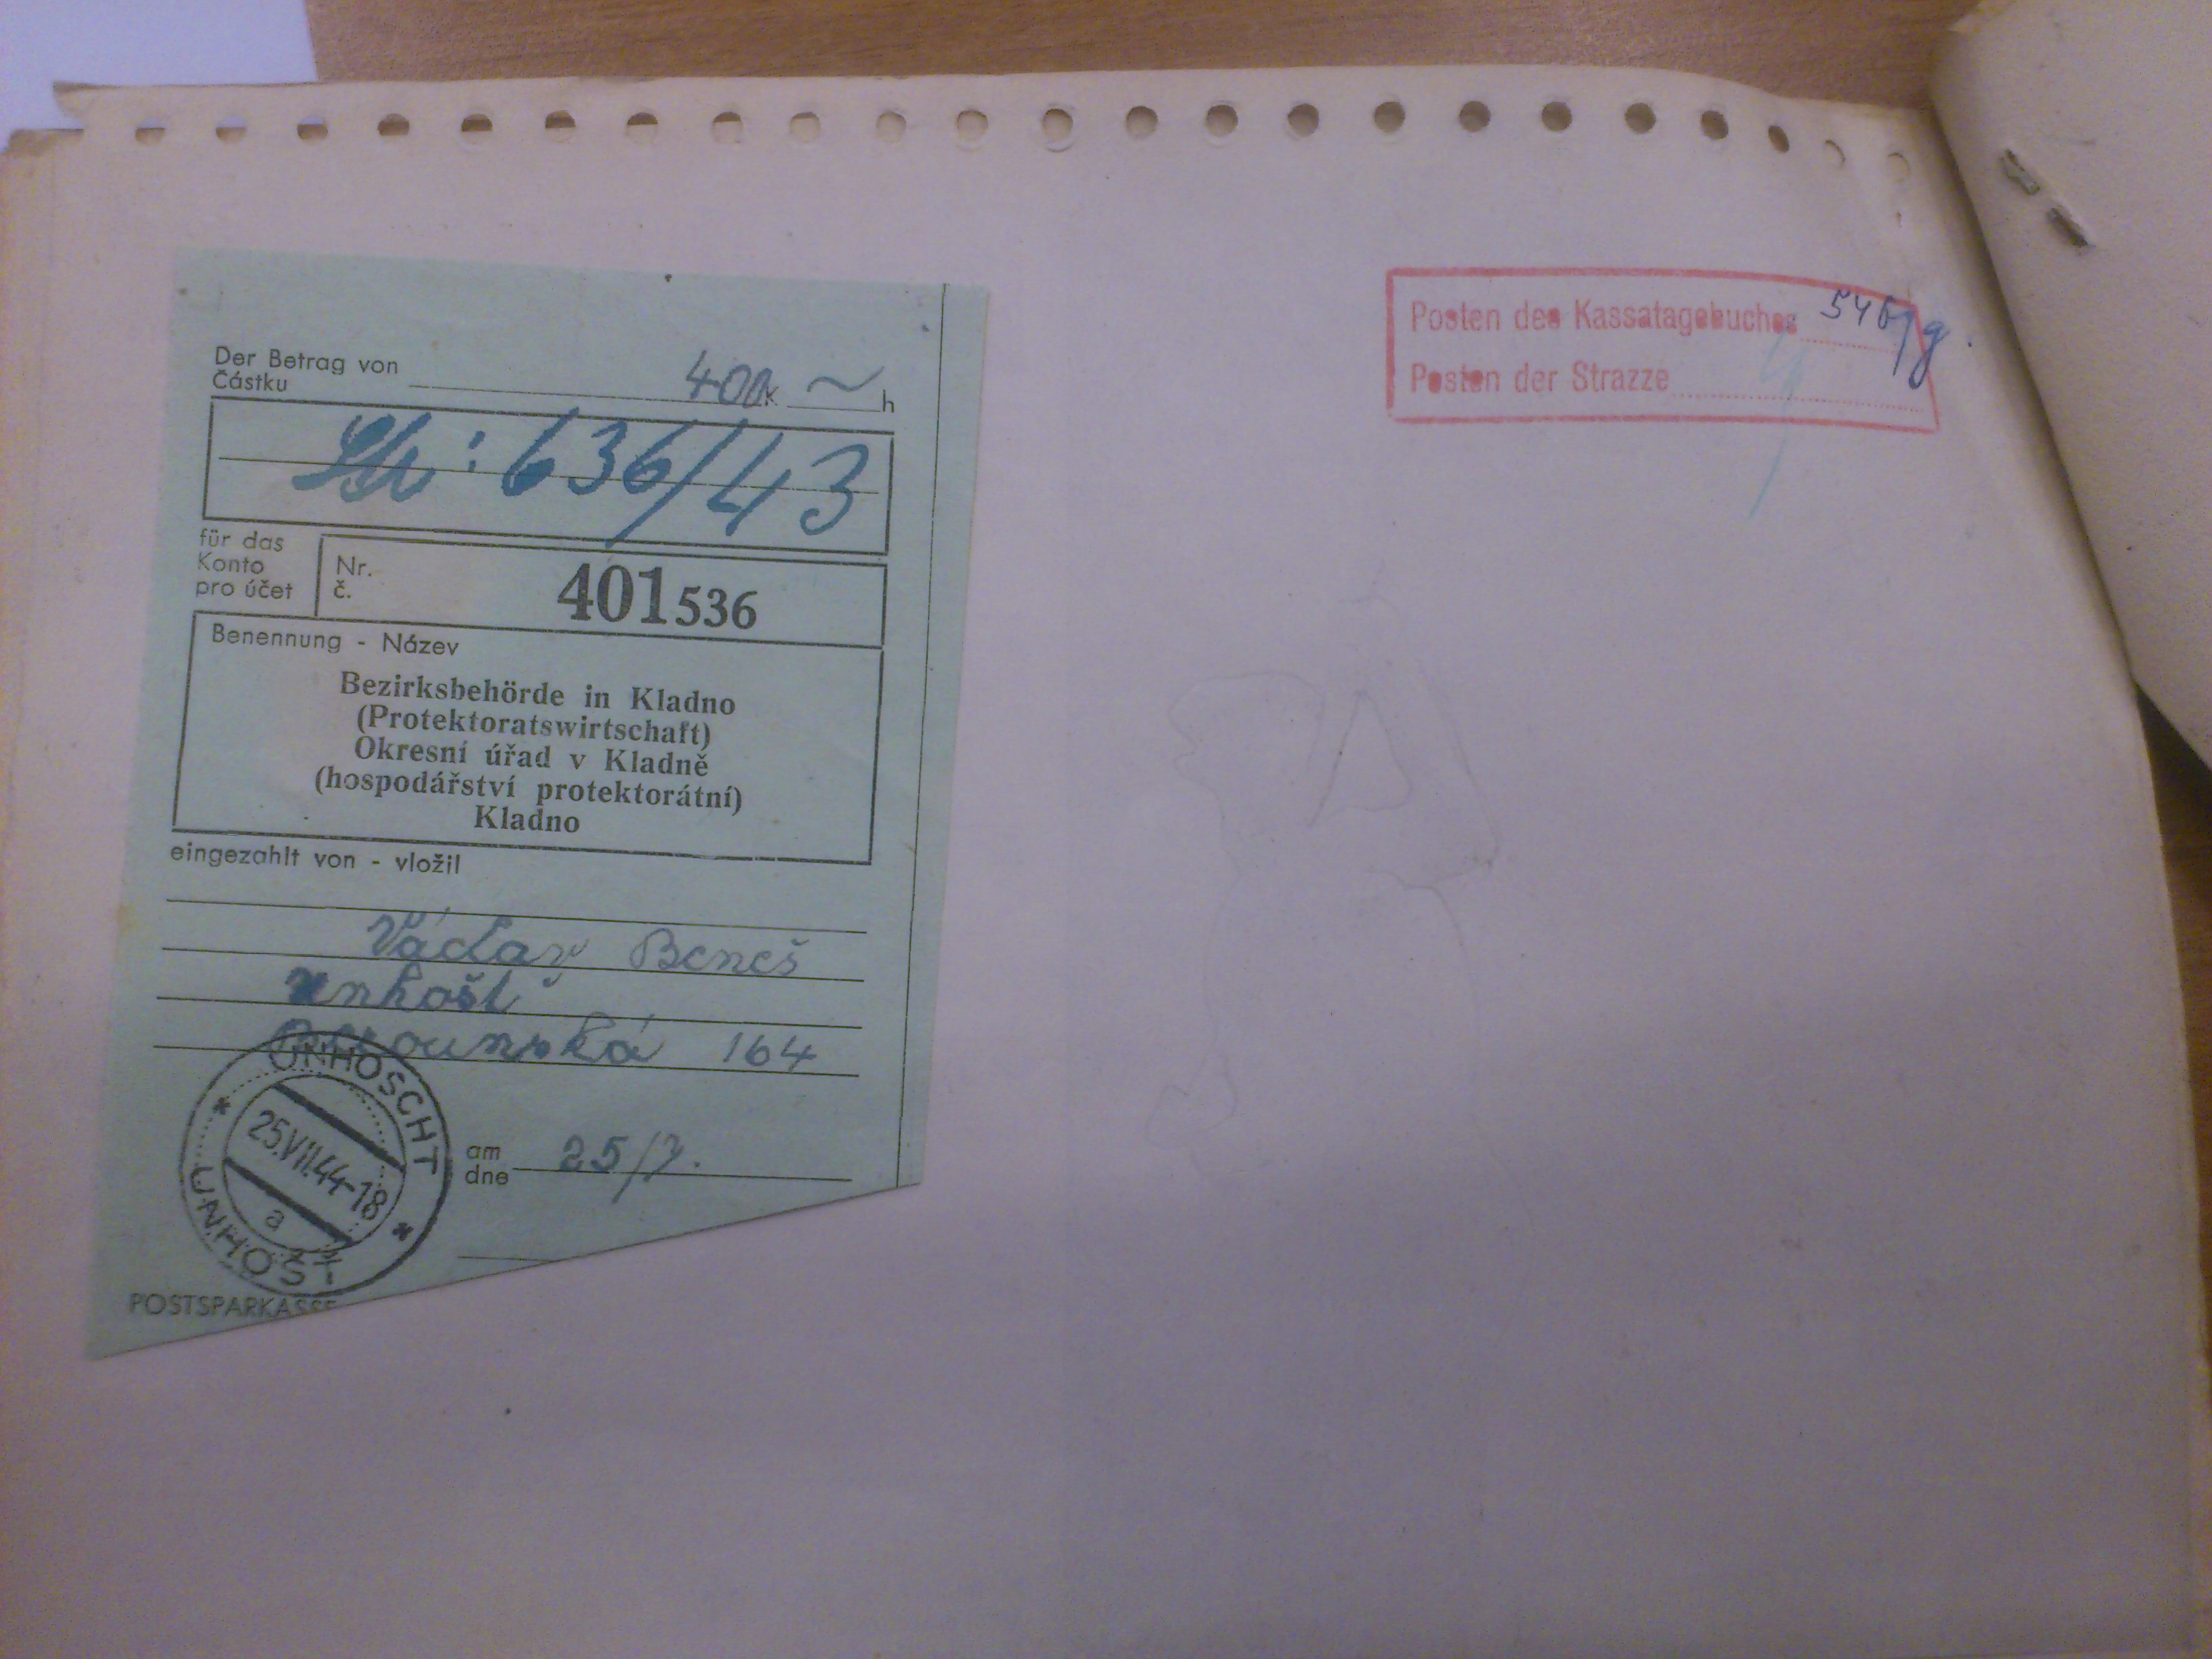 Der Betrag von
Částku
400 K ~ h
: 636/43
für das
Konto
pro účet
Nr.
č.
401536
Benennung - Název
Bezirksbehörde in Kladno
(Protektoratswirtschaft)
Okresní úřad v Kladně
(hospodářství protektorátní)
Kladno
eingezahlt von - vložil
Václav Beneš
Unhošť
164
UNHOSCHT
25.VII.44-18
a
UNHOŠŤ
am
dne
25/7.
POSTSPARKASSE
Posten des Kassatagebuches
Posten der Strazze